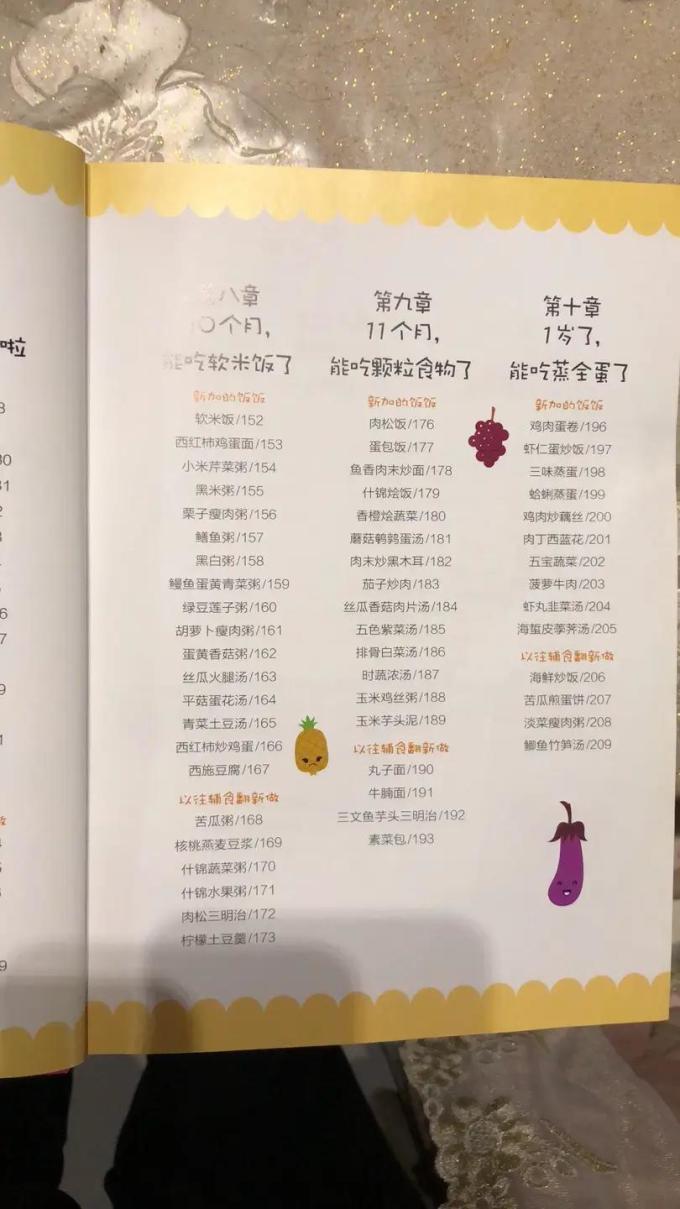 啦
第八章
10个月，
能吃软米饭了
新加的饭饭
软米饭/152
西红柿鸡蛋面/153
小米芹菜粥/154
黑米粥/155
栗子瘦肉粥/156
鳝鱼粥/157
黑白粥/158
鳗鱼蛋黄青菜粥/159
绿豆莲子粥/160
胡萝卜瘦肉粥/161
蛋黄香菇粥/162
丝瓜火腿汤/163
平菇蛋花汤/164
青菜土豆汤/165
西红柿炒鸡蛋/166
西施豆腐/167
以往辅食翻新做
苦瓜粥/168
核桃燕麦豆浆/169
什锦蔬菜粥/170
什锦水果粥/171
肉松三明治/172
柠檬土豆羹/173
第九章
11个月，
能吃颗粒食物了
新加的饭饭
肉松饭/176
蛋包饭/177
鱼香肉末炒面/178
什锦烩饭/179
香橙烩蔬菜/180
蘑菇鹌鹑蛋汤/181
肉末炒黑木耳/182
茄子炒肉/183
丝瓜香菇肉片汤/184
五色紫菜汤/185
排骨白菜汤/186
时蔬浓汤/187
玉米鸡丝粥/188
玉米芋头泥/189
以往辅食翻新做
丸子面/190
牛腩面/191
三文鱼芋头三明治/192
素菜包/193
第十章
1岁了，
能吃蒸全蛋了
新加的饭饭
鸡肉蛋卷/196
虾仁蛋炒饭/197
三味蒸蛋/198
蛤蜊蒸蛋/199
鸡肉炒藕丝/200
肉丁西蓝花/201
五宝蔬菜/202
菠萝牛肉/203
虾丸韭菜汤/204
海蜇皮荸荠汤/205
以往辅食翻新做
海鲜炒饭/206
苦瓜煎蛋饼/207
淡菜瘦肉粥/208
鲫鱼竹笋汤/209